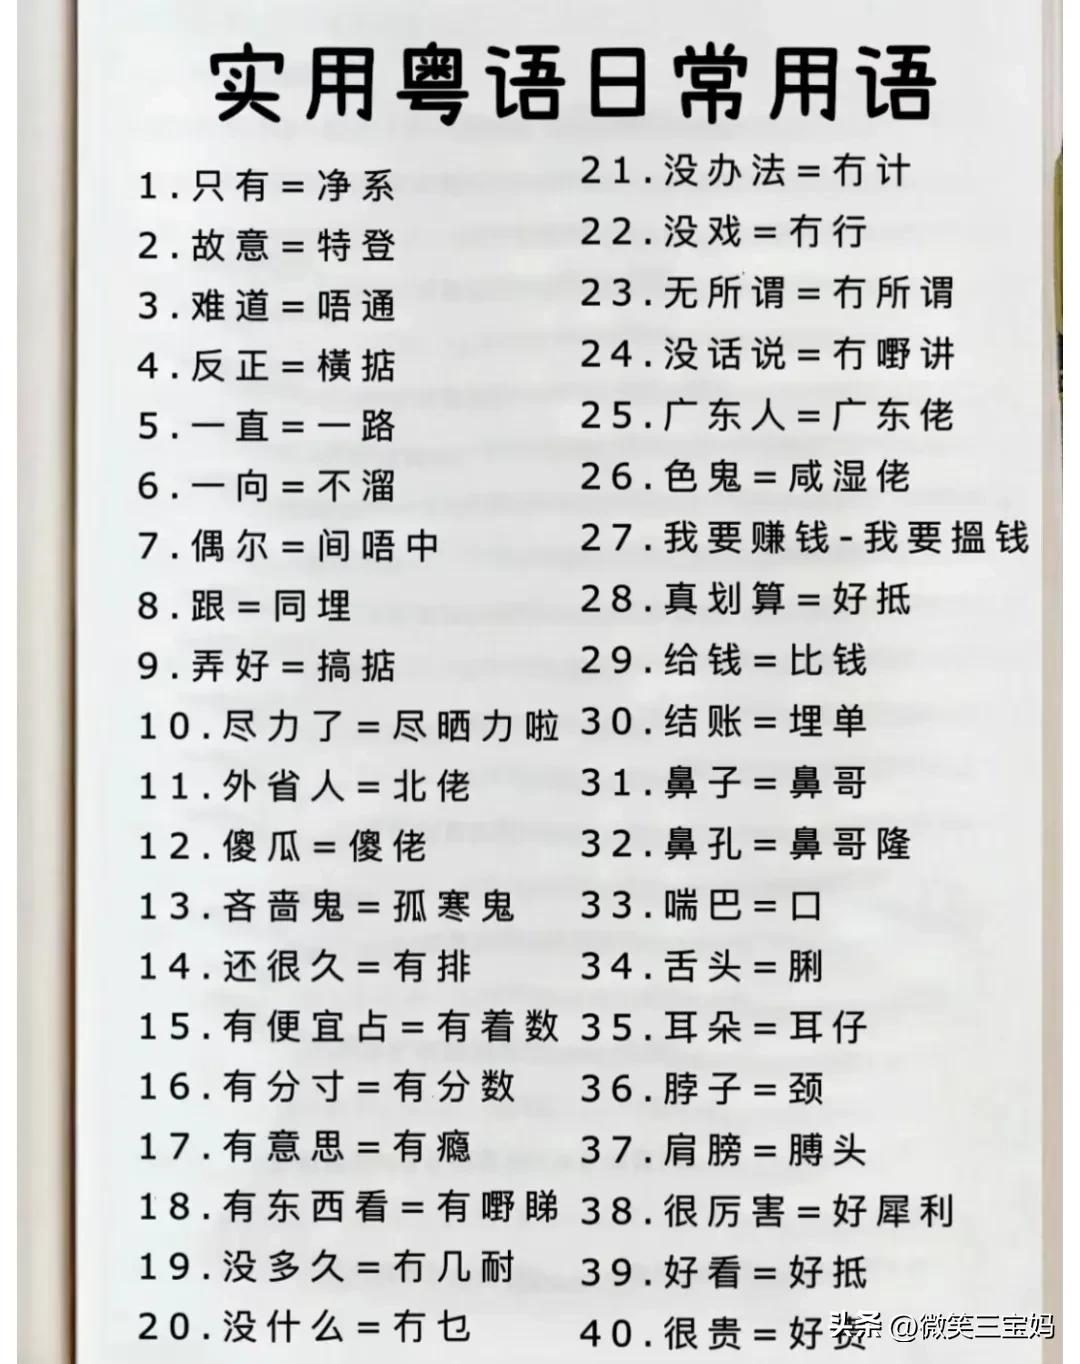 实用粤语日常用语
1.只有=净系
2.故意=特登
3.难道=唔通
4.反正=横掂
5.一直=一路
6.一向=不溜
7.偶尔=间唔中
8.跟=同埋
9.弄好=搞掂
10.尽力了=尽晒力啦
11.外省人=北佬
12.傻瓜=傻佬
13.吝啬鬼=孤寒鬼
14.还很久=有排
15.有便宜占=有着数
16.有分寸=有分数
17.有意思=有瘾
18.有东西看=有嘢睇
19.没多久=冇几耐
20.没什么=冇乜
21.没办法=冇计
22.没戏=冇行
23.无所谓=冇所谓
24.没话说=冇嘢讲
25.广东人=广东佬
26.色鬼=咸湿佬
27.我要赚钱-我要搵钱
28.真划算=好抵
29.给钱=比钱
30.结账=埋单
31.鼻子=鼻哥
32.鼻孔=鼻哥隆
33.喘巴=口
34.舌头=脷
35.耳朵=耳仔
36.脖子=颈
37.肩膀=膊头
38.很厉害=好犀利
39.好看=好抵
40.很贵=好贵
头条 @微笑三宝妈